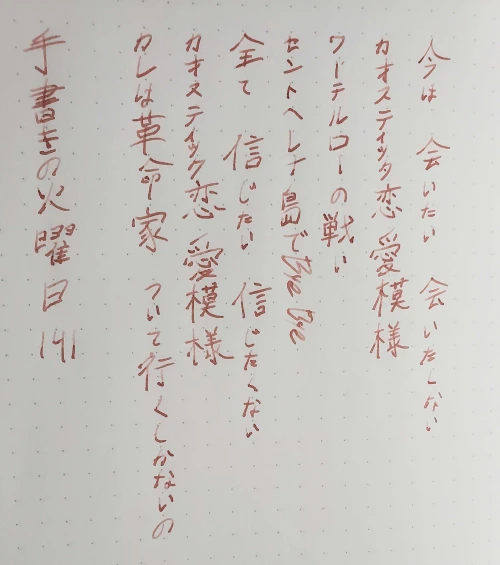 今は 会いたい 会いたくない
カオスティック恋愛模様
ワーテルローの戦い
セントヘレナ島でBye Bye
全て 信じたい 信じたくない
カオスティック恋愛模様
カレは革命家 ついて行くしかないの
手書きの火曜日 191